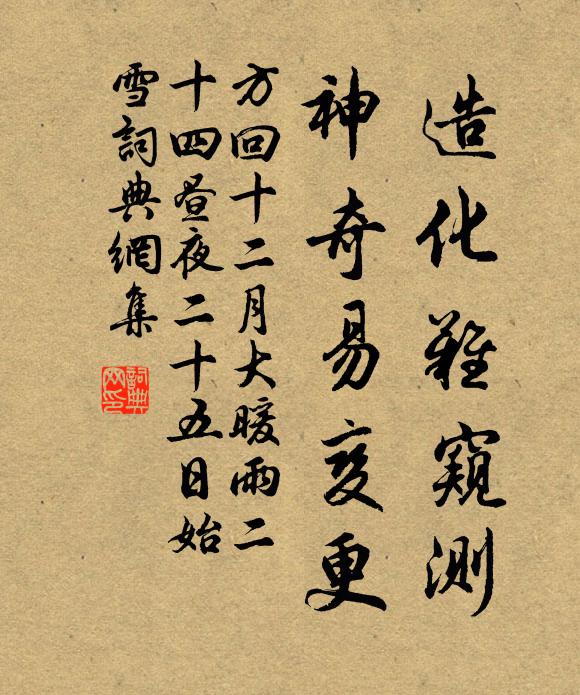 造化難窺測
神奇易變更
方回十二月大暖雨二
十四昼夜二十五日始
雪詞典網集
詞典网印